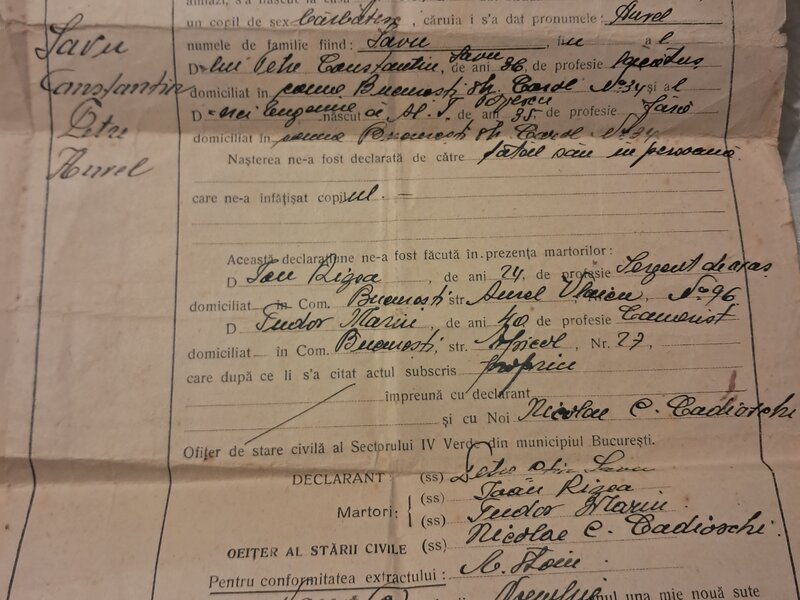 un copil de sex bărbătesc, căruia i s'a dat pronumele: Aurel
Savu
numele de familie fiind: Savu, fiu al
Constantin
D-lui Petre Constantin Savu, de ani 36 de profesie
Petre
domiciliat în comuna București str. Carol No 34 și al
Aurel
D-nei Eugenia născut ă Al. T. Popescu de ani 35 de profesie casă
domiciliat în comuna București str. Carol No 34
Nașterea ne-a fost declarată de către tatăl său în persoană
care ne-a înfățișat copilul. =
Această declarațiune ne-a fost făcută în prezența martorilor:
D Ioan Rizea, de ani 24, de profesie Sergent de oraș
domiciliat în Com. București, str. Aurel Vlaicu, No 96
D Tudor Marin, de ani 40 de profesie Camerist
domiciliat în Com. București, str., Nr. 27,
care după ce li s'a citat actul subscris propriu
împreună cu declarant
și cu Noi Nicolae C. Cadioschi
Ofițer de stare civilă al Sectorului IV Verde din municipiul București.
DECLARANT: (ss) Petre Savu
Martori: { (ss) Ioan Rizea
(ss) Tudor Marin
OFIȚER AL STĂRII CIVILE (ss) Nicolae C. Cadioschi.
Pentru conformitatea extractului: Stoin
anul una mie nouă sute